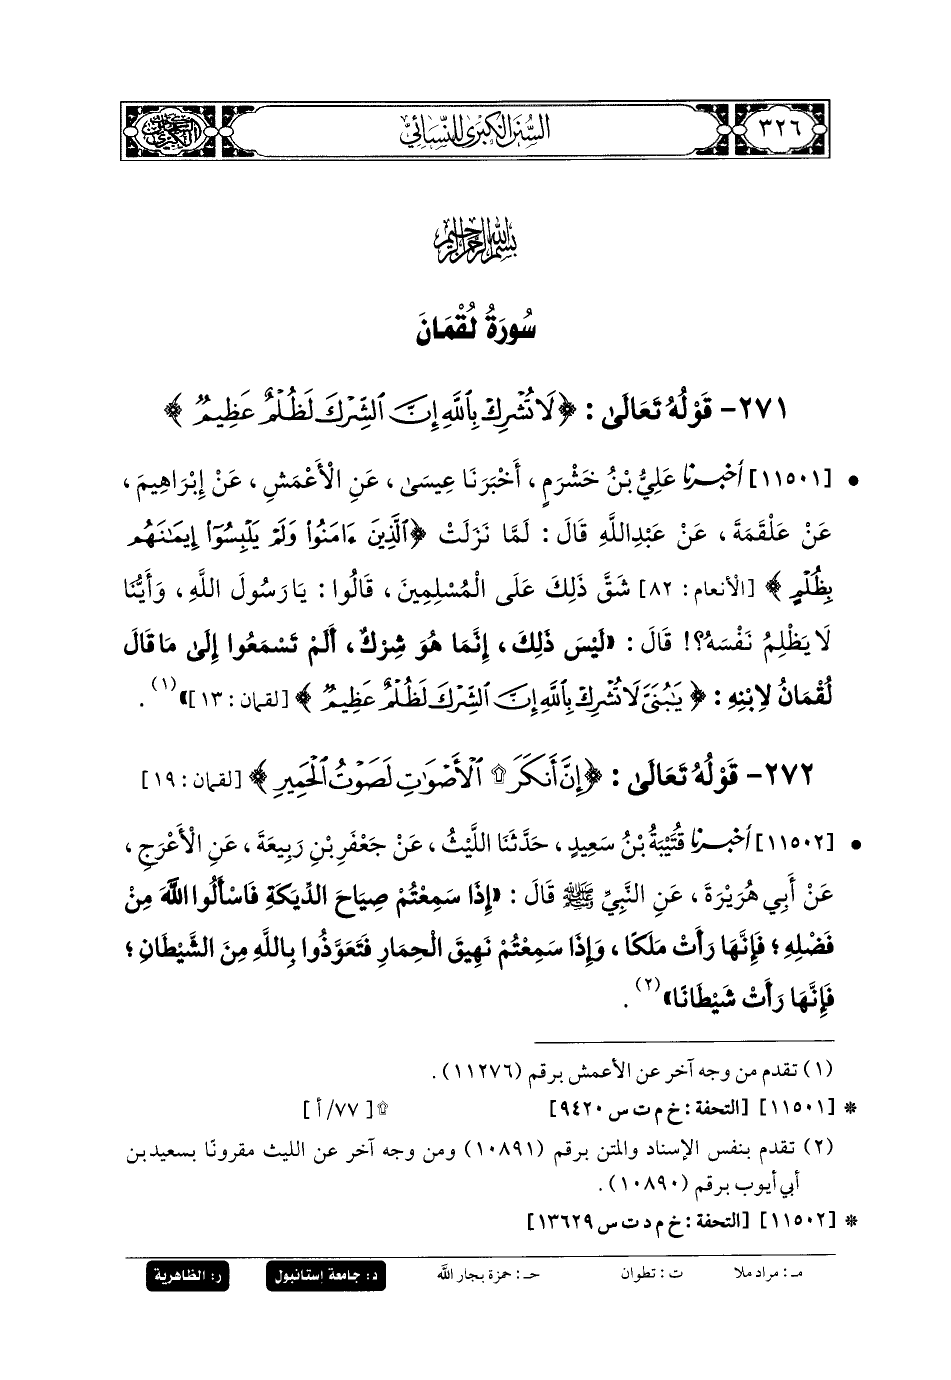 ٣٢٦
السُّنَنُ الكُبْرَى لِلنَّسَائِيِّ
السُّنَنُ الكُبْرَى
بِسْمِ اللَّهِ الرَّحْمَنِ الرَّحِيمِ
سُورَةُ لُقْمَانَ
٢٧١- قَوْلُهُ تَعَالَى: ﴿لَا تُشْرِكْ بِٱللَّهِ إِنَّ ٱلشِّرْكَ لَظُلْمٌ عَظِيمٌ﴾
• [١١٥٠١] أَخْبَرَنَا عَلِيُّ بْنُ خَشْرَمٍ، أَخْبَرَنَا عِيسَى، عَنِ الْأَعْمَشِ، عَنْ إِبْرَاهِيمَ،
عَنْ عَلْقَمَةَ، عَنْ عَبْدِاللَّهِ قَالَ: لَمَّا نَزَلَتْ ﴿ٱلَّذِينَ ءَامَنُوا۟ وَلَمْ يَلْبِسُوٓا۟ إِيمَٰنَهُم
بِظُلْمٍ﴾ [الأنعام: ٨٢] شَقَّ ذَلِكَ عَلَى الْمُسْلِمِينَ، قَالُوا: يَا رَسُولَ اللَّهِ، وَأَيُّنَا
لَا يَظْلِمُ نَفْسَهُ؟! قَالَ: «لَيْسَ ذَلِكَ، إِنَّمَا هُوَ شِرْكٌ، أَلَمْ تَسْمَعُوا إِلَى مَا قَالَ
لُقْمَانُ لِابْنِهِ: ﴿يَٰبُنَىَّ لَا تُشْرِكْ بِٱللَّهِ إِنَّ ٱلشِّرْكَ لَظُلْمٌ عَظِيمٌ﴾ [لقمان: ١٣]»(١).
٢٧٢- قَوْلُهُ تَعَالَى: ﴿إِنَّ أَنكَرَ ۩ ٱلْأَصْوَٰتِ لَصَوْتُ ٱلْحَمِيرِ﴾ [لقمان: ١٩]
• [١١٥٠٢] أَخْبَرَنَا قُتَيْبَةُ بْنُ سَعِيدٍ، حَدَّثَنَا اللَّيْثُ، عَنْ جَعْفَرِ بْنِ رَبِيعَةَ، عَنِ الْأَعْرَجِ،
عَنْ أَبِي هُرَيْرَةَ، عَنِ النَّبِيِّ ﷺ قَالَ: «إِذَا سَمِعْتُمْ صِيَاحَ الدِّيَكَةِ فَاسْأَلُوا اللَّهَ مِنْ
فَضْلِهِ؛ فَإِنَّهَا رَأَتْ مَلَكًا، وَإِذَا سَمِعْتُمْ نَهِيقَ الْحِمَارِ فَتَعَوَّذُوا بِاللَّهِ مِنَ الشَّيْطَانِ؛
فَإِنَّهَا رَأَتْ شَيْطَانًا»(٢).
(١) تقدم من وجه آخر عن الأعمش برقم (١١٢٧٦).
* [١١٥٠١] [التحفة: خ م ت س ٩٤٢٠] ۩ [٧٧/ أ]
(٢) تقدم بنفس الإسناد والمتن برقم (١٠٨٩١) ومن وجه آخر عن الليث مقرونًا بسعيد بن
أبي أيوب برقم (١٠٨٩٠).
* [١١٥٠٢] [التحفة: خ م د ت س ١٣٦٢٩]
مـ: مراد ملا ت: تطوان حـ: حمزة بجار الله د: جامعة إستانبول ر: الظاهرية